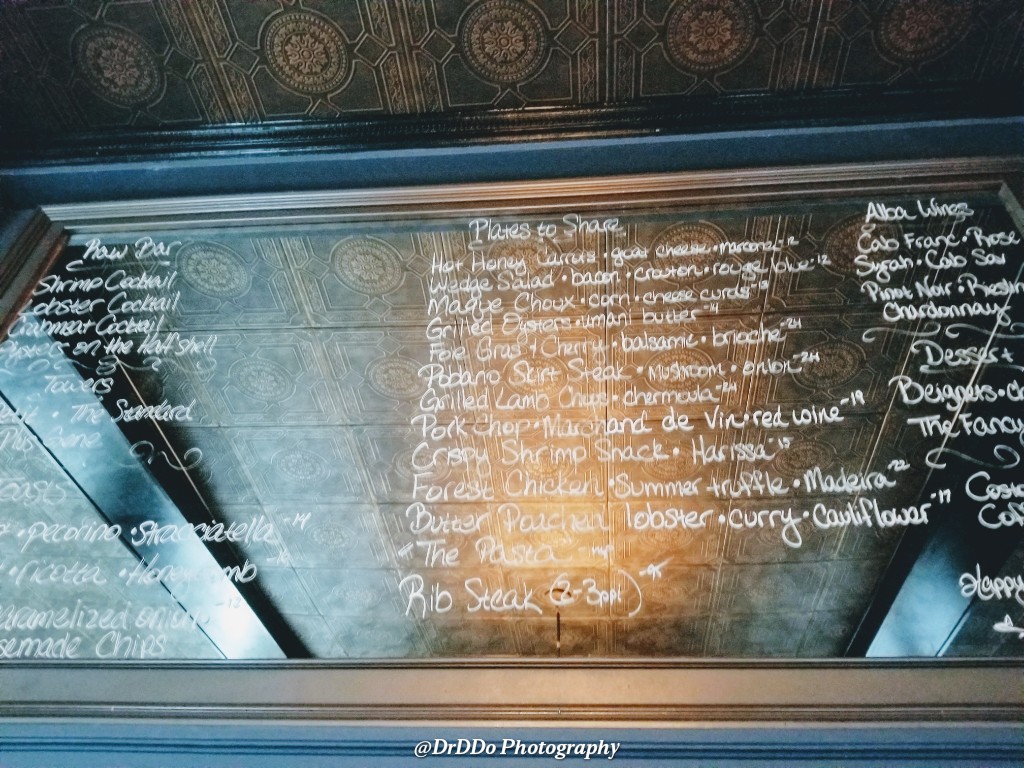 Raw Bar
Shrimp Cocktail
Lobster Cocktail
Crabmeat Cocktail
on the Half shell
Towers
The Standard
Toasts
• pecorino • Stracciatella -19
• ricotta • Honeycomb
caramelized onion -12
Chips
Plates to Share
Hot Honey Carrots • goat cheese • Marcona -12
Wedge Salad • bacon • crouton • rouge blue -12
Maque Choux • corn • cheese curds -13
Grilled Oysters • umami butter -14
Foie Gras • Cherry • balsamic • brioche -24
Poblano Skirt Steak • Mushroom • onion -24
Grilled Lamb Chops • chermoula -24
Pork Chop • Marchand de Vin • red wine -19
Crispy Shrimp Snack • Harissa -15
Forest Chicken • Summer truffle • Madeira -22
Butter Poached lobster • curry • Cauliflower -17
"The Pasta" -mp
Rib Steak (2-3ppl) -95
Alba Wines
Cab Franc • Rose
Syrah • Cab Sav
Pinot Noir •
Chardonnay
Dessert
Beignets •
The Fancy
Happy
@DrDDo Photography